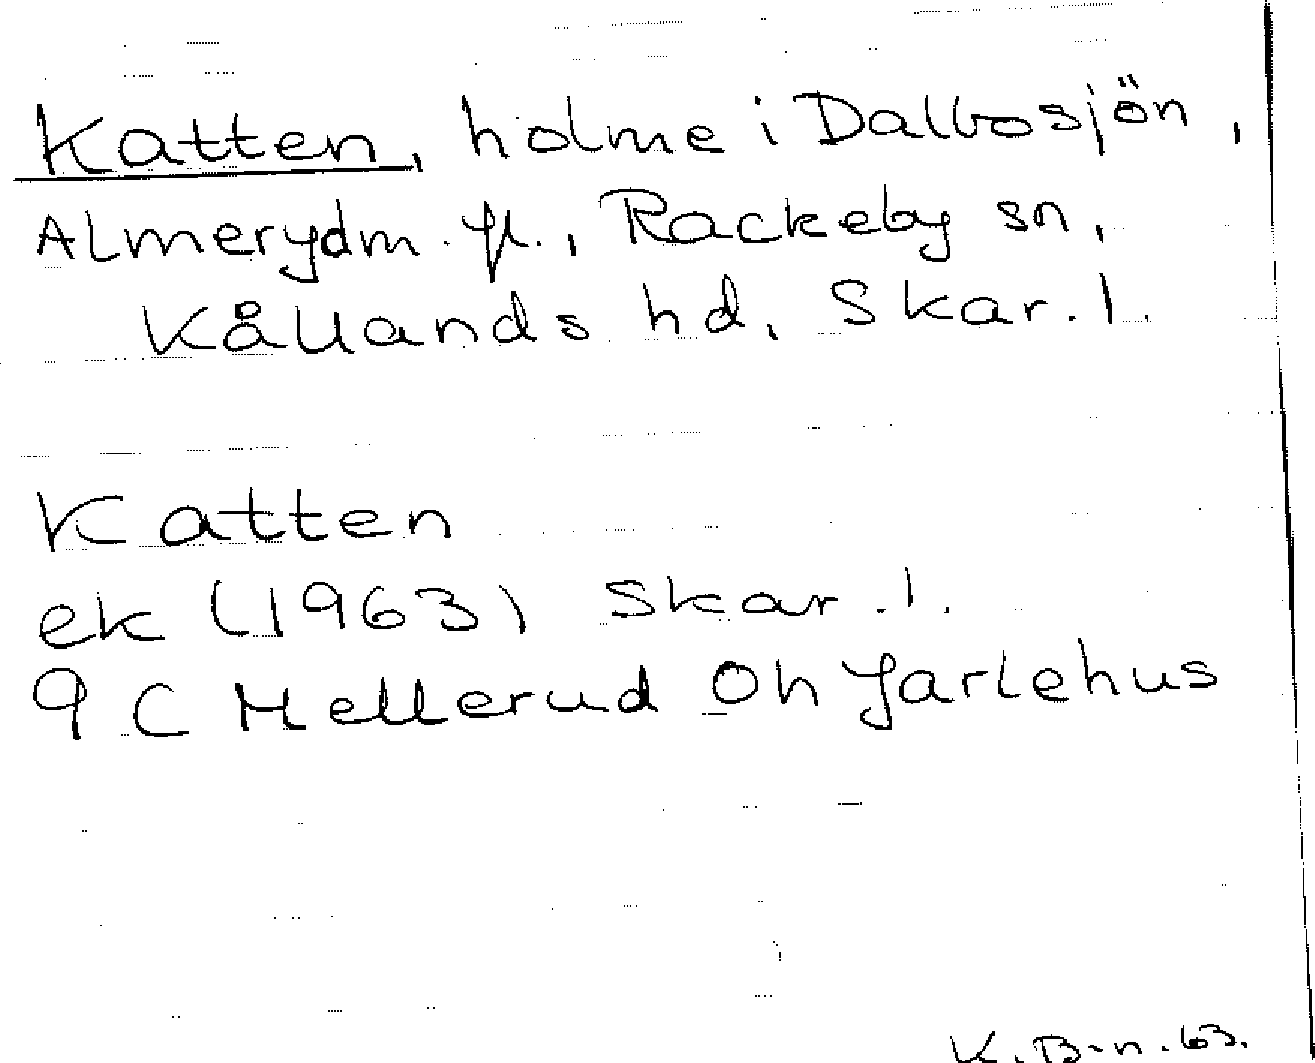 Katten, holme i Dalbosjön,
Almerydm. fl., Rackeby sn,
Kållands hd, Skar. l.
Katten
ek (1963) Skar. l.
9 C Mellerud Oh Jarlehus
K. B-n. 63.